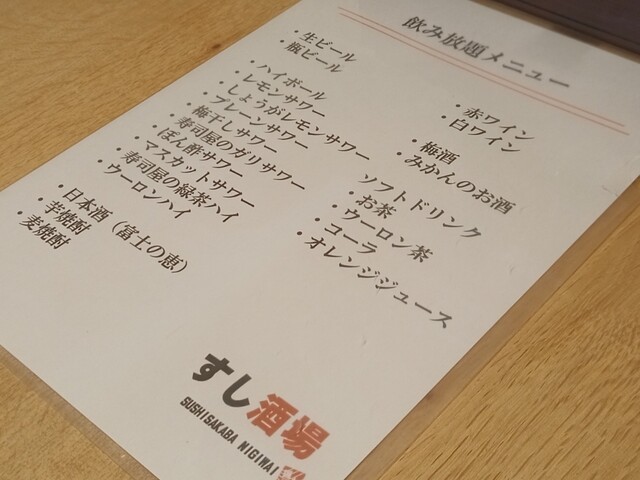 飲み放題メニュー
・生ビール
・瓶ビール
・ハイボール
・レモンサワー
・しょうがレモンサワー
・プレーンサワー
・梅干しサワー
・寿司屋のガリサワー
・ぽん酢サワー
・マスカットサワー
・寿司屋の緑茶ハイ
・ウーロンハイ
・日本酒(富士の恵)
・芋焼酎
・麦焼酎
・赤ワイン
・白ワイン
・梅酒
・みかんのお酒
ソフトドリンク
・お茶
・ウーロン茶
・コーラ
・オレンジジュース
すし酒場
SUSHISAKABA NIGIWAI